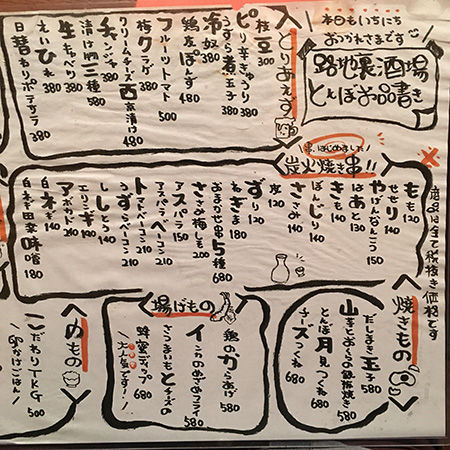 本日もいちにち
おつかれさまです
路地裏酒場
とんぼお品書き
とりあえず
枝豆 300
ピリ辛きゅうり 380
うずら煮玉子 380
冷奴 380
鶏皮ぽんず 480
フルーツトマト 500
梅クラゲ 380
クリームチーズ西京漬け 480
チャンジャ 380
漬け卵二種 580
生キャベツ 380
えいひれ 380
日替わりポテサラ 380
串、はじめました!
炭火焼き串!!
※商品は全て税抜き価格です
もも 120
せせり 140
やげんなんこつ 150
はあと 130
きも 140
ぼんじり 140
ささみ 140
皮 120
ずり 120
ねぎま 180
おまかせ串5種 680
ささみ梅しそ 200
アスパラ 150
アスパラベーコン 210
トマトベーコン 210
うずらベーコン 210
ししとう 140
エリンギ 140
アボカド
白ネギ 140
180
焼きもの
だしまき玉子 580
山きざおくらの鉄板焼き 580
とんぼ月見つくね 680
チーズつくね 680
揚げもの
鶏のからあげ 580
イカの
580
さつまいもとチーズの
蜂蜜ディップ 680
大人気です!
〆もの
こだわりTKG 500
卵かけごはん!